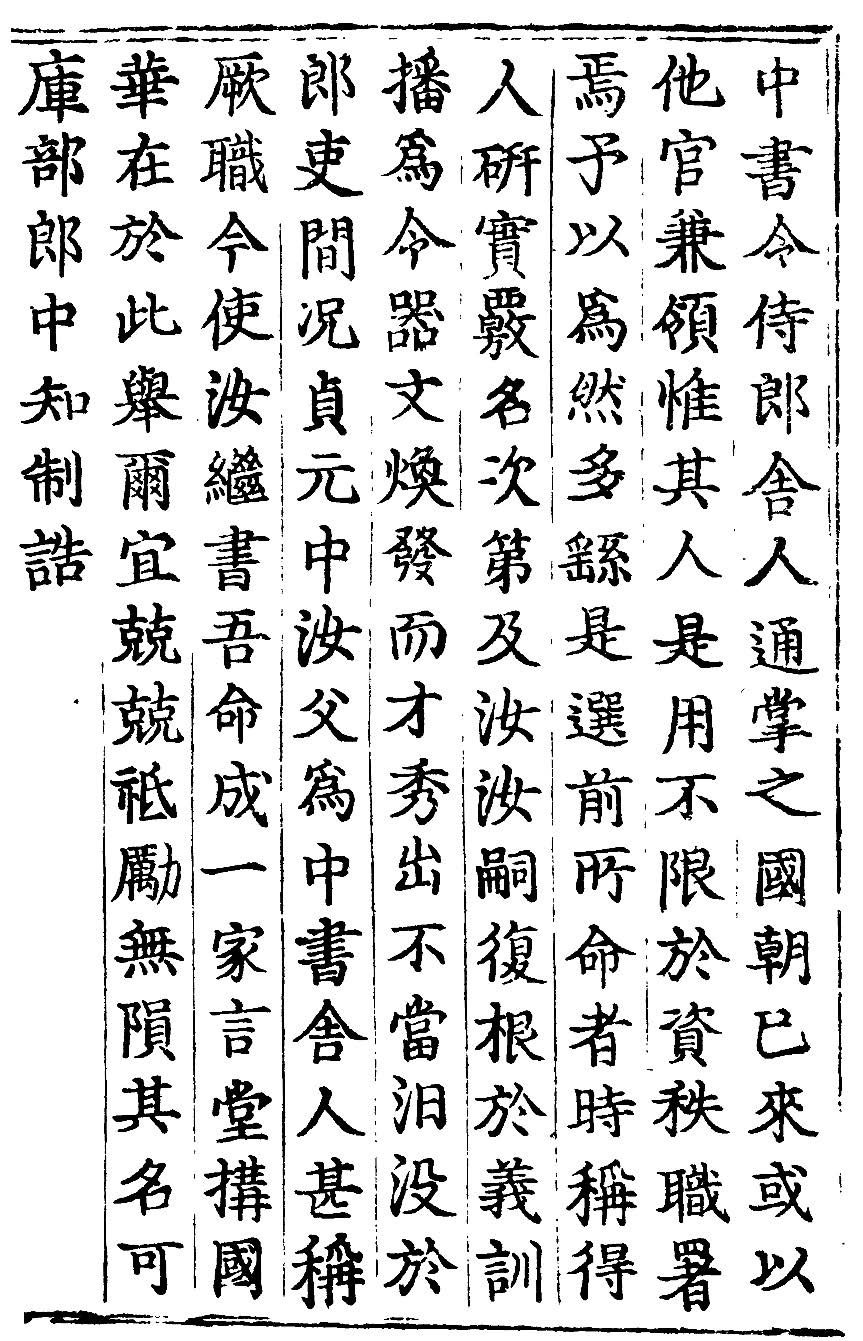 中書令侍郎舎人通掌之國朝已來或以
他官兼領惟其人是用不限於資秩職署
焉予以爲然多繇是選前所命者時稱得
人研實覈名次第及汝汝嗣復根於義訓
播爲令器文煥發而才秀出不當汨没於
郎吏間况貞元中汝父爲中書舎人甚稱
厥職今使汝繼書吾命成一家言堂搆國
華在於此舉爾宜兢兢祗勵無隕其名可
庫部郎中知制誥